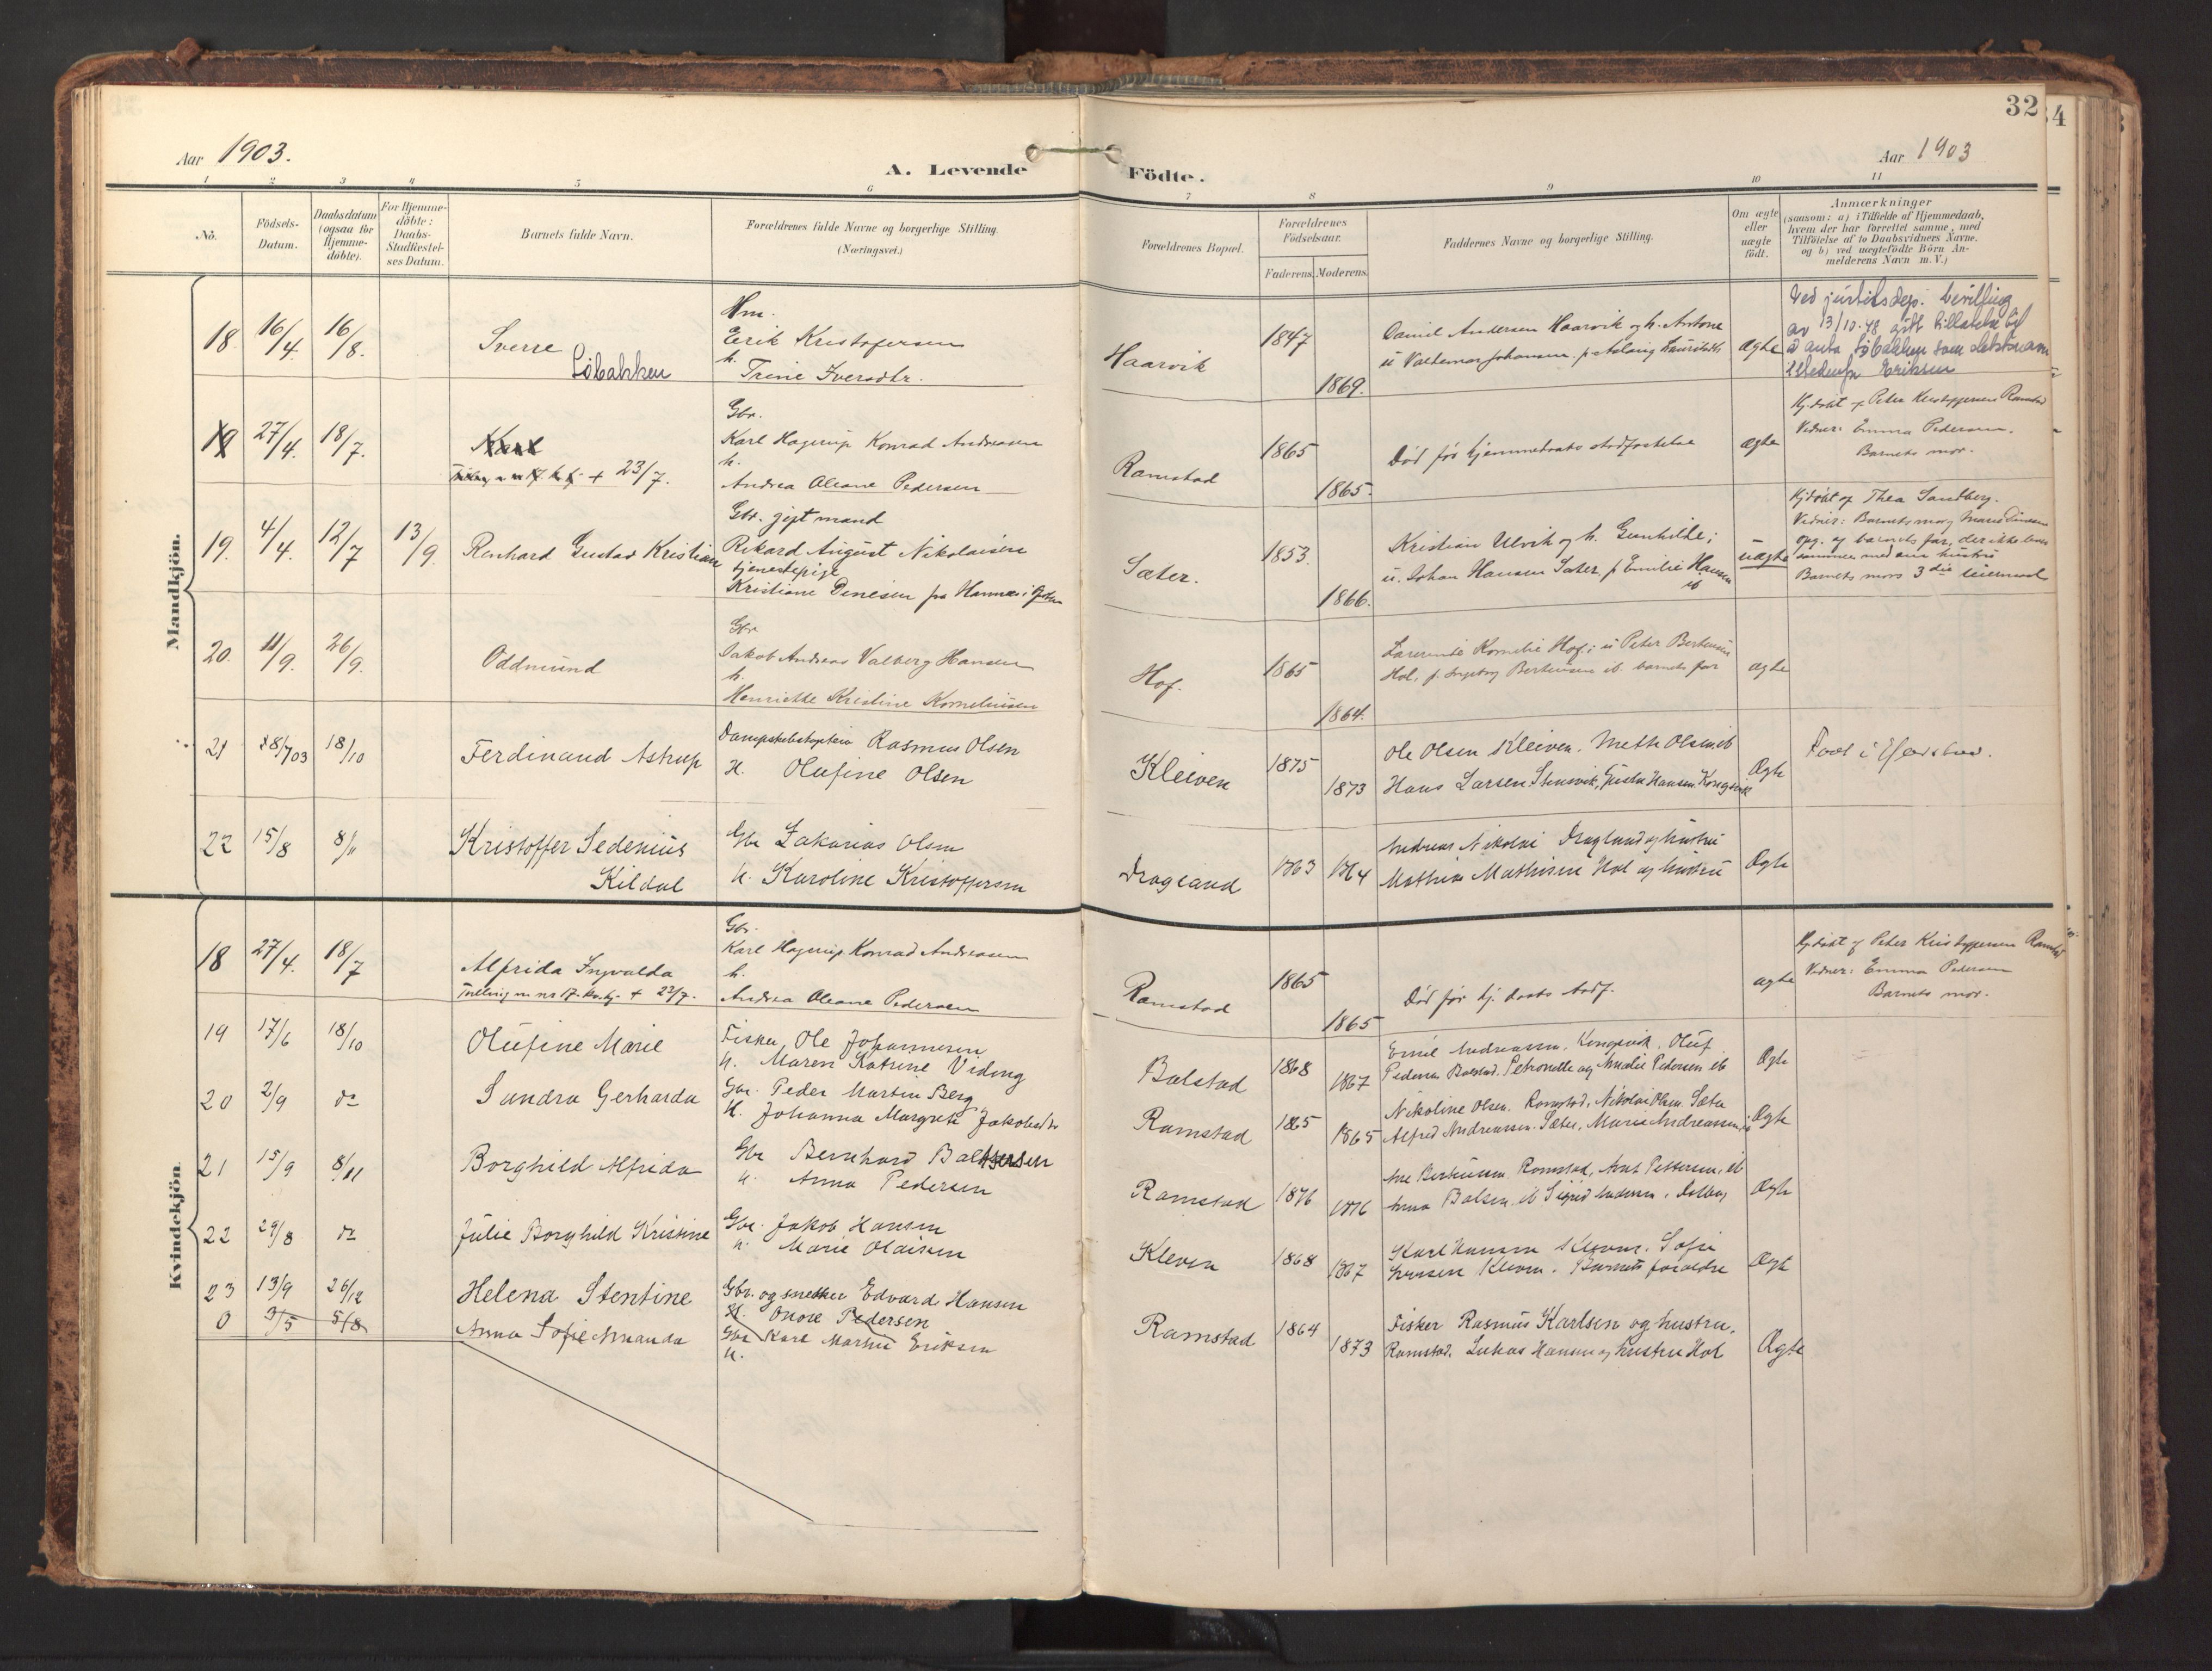 32
4
Aar 1903.
A. Levende
Födte.
Aar 1903
1 2 3 4 5 6
7 8 9 10 11
No.
Födsels-
Datum.
Daabsdatum
(ogsaa for
Hjemme-
döbte).
For Hjemme-
döbte:
Daabs-
Stadfæstel-
ses Datum.
Barnets fulde Navn.
Forældrenes fulde Navne og borgerlige Stilling.
(Næringsvei.)
Forældrenes Bopæl.
Forældrenes
Födselsaar.
Faderens. Moderens.
Faddernes Navne og borgerlige Stilling.
Om ægte
eller
uægte
födt.
Anmærkninger
(saasom: a) i Tilfælde af Hjemmedaab,
hvem der har forrettet samme, med
Tilföielse af to Daabsvidners Navne.
og b) ved uægtefödte Börn An-
melderens Navn m. V.)
Mandkjön.
18 16/4. 16/8. Sverre
Søbakken
Hm.
Erik Kristofersen
h.
Trine Iversdtr.
Haarvik 1847
1869.
Daniel Andersen Haarvik og h. Antone
u Valdemar Johansen p Aslaug
ægte
Ved justisdep. bevilling
av 13/10-48 gitt tillatelse til
å anta Søbakken som slektsnavn
istedenfor Eriksen
19 27/4. 18/7. Karl
+ 23/7.
Gbr.
Karl Hagerup Konrad Andreasen
h.
Andrea Oleane Pedersen
Ramstad 1865
1865.
Död før hjemmedaabs stadfæstelse
ægte
Hj.døbt af Peter Kristoffersen Ramstad
Vidner: Emma Pedersen.
Barnets mor.
19. 4/4. 12/7 13/9. Renhard Gustav Kristian
Gbr. gift mand
Rikard August Nikolaisen
tjenestepige
Kristiane Denesen fra Hamnæs i
Sæter. 1853.
1866.
Kristian Ulvik og h. Gunhilde;
u. Johan Hansen Sæter p Emilie Hansen
ib
uægte
Hj.døbt af Thea Sandberg.
Vidner: Barnets mor og Marie
opg. og barnets far, der ikke lever
sammen med sin hustru
Barnets mors 3die leiermaal
20. 11/9. 26/9. Oddmund
Gbr.
Jakob Andreas Valberg Hansen
h.
Henriette Kristine Korneliusen
Hof. 1865
1864.
Kornelie Hof; u Peter Berteusen
Hol, p. Ingeborg Berteusen ib. barnets far
ægte
21 28/7 03 18/10 Ferdinand Astrup
Dampskibskaptein Rasmus Olsen
H. Olufine Olsen
Kleiven 1875
1873
Ole Olsen Kleiven. Meth Olsen ib
Hans Larsen Stensvik, Gusta Hansen Kongsvik
Ægte
Født i Harstad.
22 15/8 8/11 Kristoffer Sedenius
Kildal
Gbr Zakarias Olsen
H. Karoline Kristoffersen
Drageland 1863 1864
Andreas Nikolai Dragland og hustru
Mathias Mathisen Hol og hustru
Ægte
Kvindekjön.
18 27/4. 18/7 Alfrida Ingvalda
+ 23/7.
Gbr.
Karl Hagerup Konrad Andreasen
h.
Andrea Oleane Pedersen
Ramstad 1865
1865
Död før hj. daabs stadf.
ægte
Hj.døbt af Peter Kristoffersen Ramstad
Vidner: Emma Pedersen
Barnets mor.
19 17/6 18/10 Olufine Marie
Fisker Ole Johannesen
H. Maren Katrine Viding
Balstad 1868
1867
Emil Andreassen. Kongsvik. Oluf
Pedersen Balstad. Petronelle og Amalie Pedersen ib
Ægte
20 2/9 do Sandra Gerharda
Gbr. Peder Martin Berg
H. Johanna Margrete Jakobsdtr
Ramstad 1865
1865
Nikoline Olsen. Ramstad, Nikolai Olsen Sæter
Alfred Andreassen. Sæter, Marie Andreassen, ib
Ægte
21 15/9 8/11 Borghild Alfrida
Gbr Bernhard Baltsersen
H. Anna Pedersen
Ramstad 1876
1876
Ane Berteusen Ramstad, Anet Pettersen, ib
Anna Balsen ib Sigrid Andersen.
Ægte
22 29/8 do Julie Borghild Kristine
Gbr. Jakob Hansen
H. Marie Olaisen
Kleven 1868
1867
Karl Hansen Kleven. Sofie
Hansen Kleven. Barnets forældre
Ægte
23 13/9 26/12 Helena Stentine
Gbr. og snekker Edvard Hansen
H. Onore Pedersen
Ramstad 1864
1873
Fisker Rasmus Karlsen og hustru,
Ramstad. Lukas Hansen og hustru Hol
Ægte
0 3/5 5/8 Anna Sofie Amanda
Gbr Karl Martin Eriksen
H.